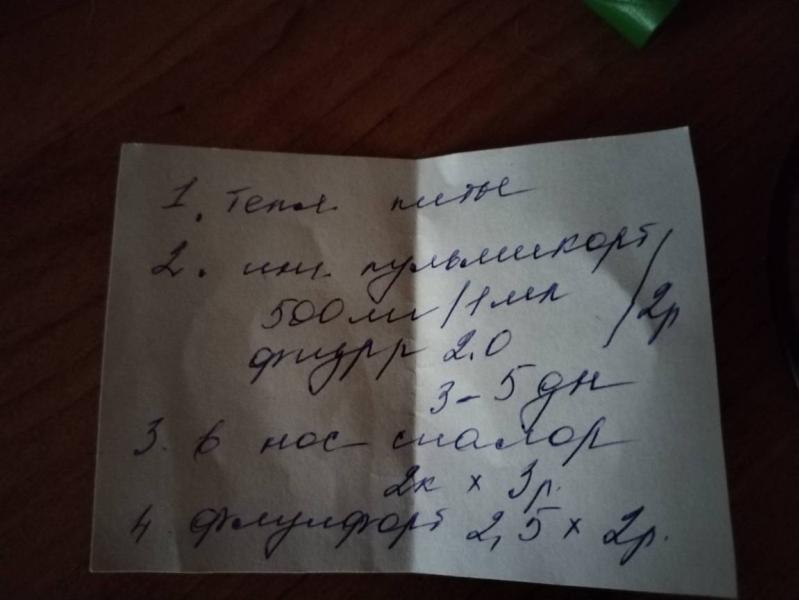 1. Тепл. питье
2. инг. пульмикорт
500 мг/1 мл / 2р
физрр 2.0
3-5 дн
3. в нос сиалор
2к × 3р.
4 флуифорт 2,5 × 2р.